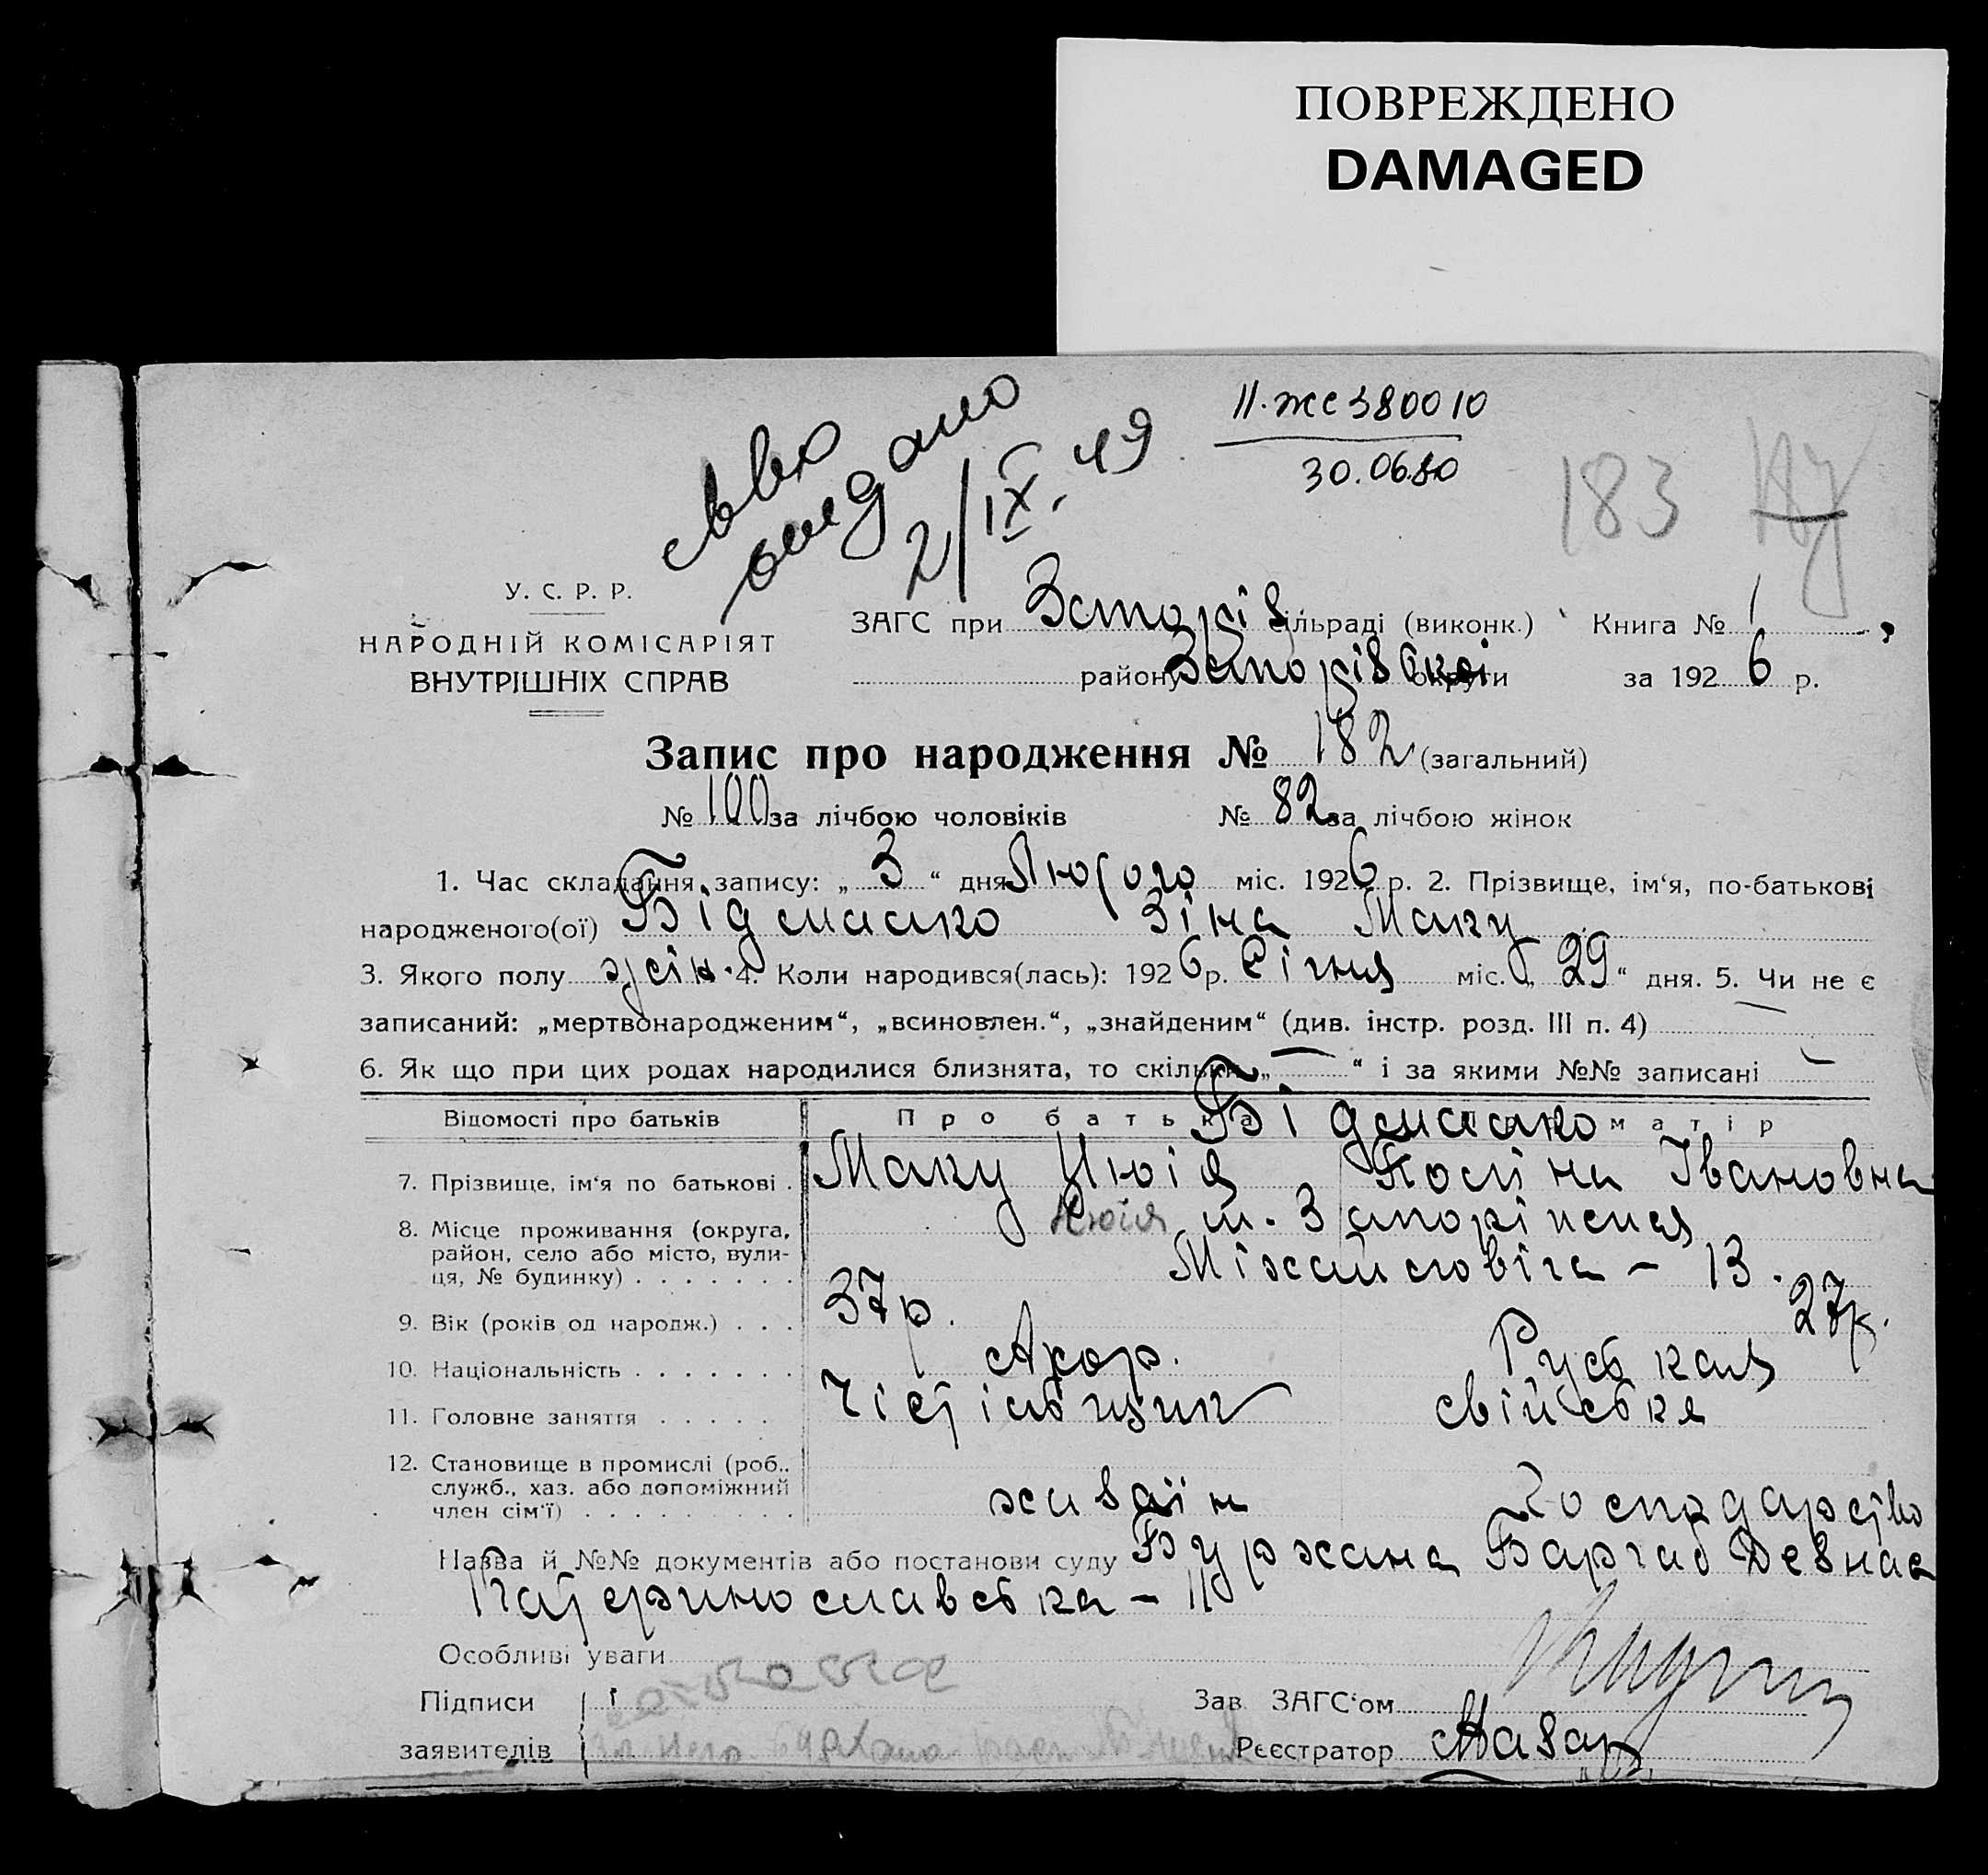 ПОВРЕЖДЕНО
DAMAGED
II-ЖС 380010
30.06.80
2/IX. 49
183
У. С. Р. Р.
НАРОДНІЙ КОМІСАРІЯТ
ВНУТРІШНІХ СПРАВ
ЗАГС при сільраді (виконк.) Книга № 1
району округи за 1926 р.
Запис про народження № 182 (загальний)
№ 100 за лічбою чоловіків № 82 за лічбою жінок
1. Час складання запису: „ 3 “ дня Лютого міс. 1926 р. 2. Прізвище, ім‘я, по-батькові
народженого(ої) Зіна Маку
3. Якого полу жін. 4. Коли народився(лась): 1926 р. Січня міс. „ 29 “ дня. 5. Чи не є
записаний: „мертвонародженим“, „всиновлен.“, „знайденим“ (див. інстр. розд. III п. 4)
6. Як що при цих родах народилися близнята, то скільки „ — “ і за якими №№ записані —
Відомості про батьків Про батька матір
7. Прізвище, ім‘я по батькові . Маку Цюія Поліна Івановна
8. Місце проживання (округа,
район, село або місто, вули-
ця, № будинку) . . . . . . . Міхайловіча – 13.
9. Вік (років од народж.) . . . 37 р. 27 р.
10. Національність . . . . . . . Руськая
11. Головне заняття . . . . . Чістільщик свійська
12. Становище в промислі (роб.,
служб., хаз. або допоміжний
член сім‘ї) . . . . . . . . . хазяїн Господарство
Назва й №№ документів або постанови суду
Катеринославська – 11
Особливі уваги
Підписи Зав. ЗАГС‘ом
заявителів Реєстратор